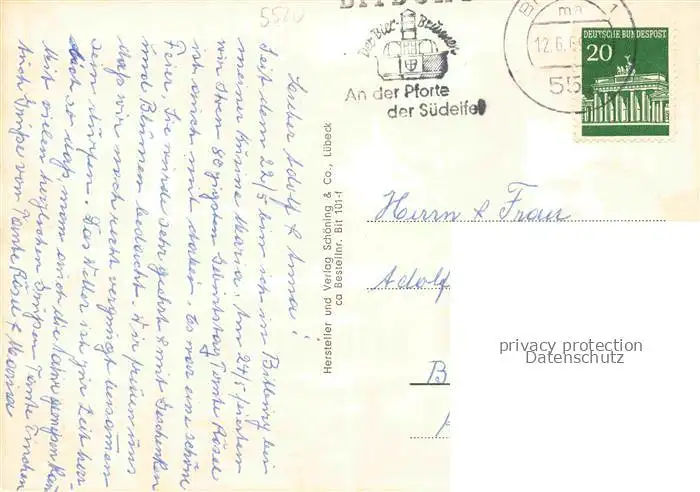 5520
BITBURG
Der Bier-Brunnen
An der Pforte
der Südeifel
12.6.6
55
DEUTSCHE BUNDESPOST
20
Lieber Adolf & Anna!
Seit dem 22/5 bin ich in Bitburg bei
meiner Maria. Am 24/5 feierten
wir ihren 80zigsten Geburtstag Tante Rösel
ist auch mit hier. Es war eine schöne
Feier. Sie wurde sehr geehrt & mit Geschenken
und Blumen bedacht. Wir freuen uns
daß wir noch recht vergnügt beisammen
sein dürfen. Das Wetter ist zur Zeit
auch so daß man auch die Natur genießen kann
Mit vielen herzlichen Grüßen Tante
Auch Grüße von Tante Rösel & Maria
Hersteller und Verlag Schöning & Co., Lübeck
ca Bestellnr. Bit 101-f
Herrn & Frau
Adolf
B
privacy protection
Datenschutz